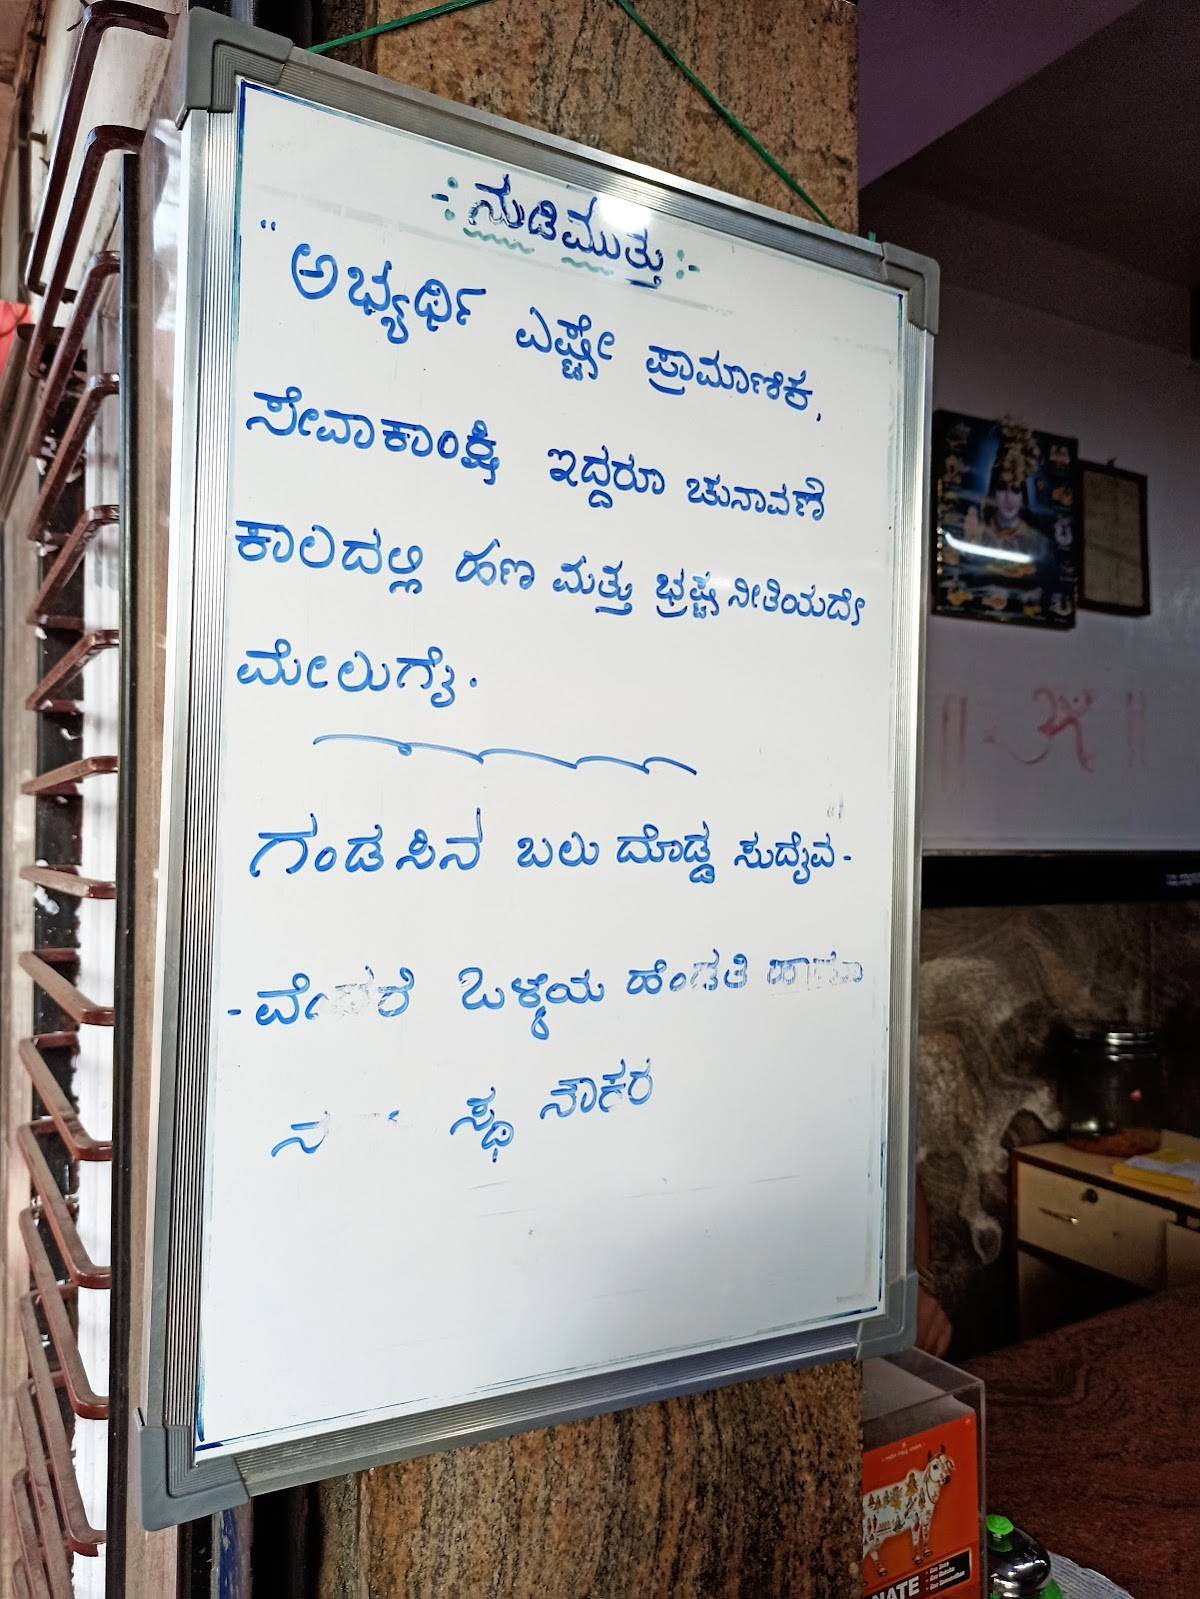 -: ನುಡಿಮುತ್ತು :-
" ಅಭ್ಯರ್ಥಿ ಎಷ್ಟೇ ಪ್ರಾಮಾಣಿಕ,
ಸೇವಾಕಾಂಕ್ಷಿ ಇದ್ದರೂ ಚುನಾವಣೆ
ಕಾಲದಲ್ಲಿ ಹಣ ಮತ್ತು ಭ್ರಷ್ಟ ನೀತಿಯದೇ
ಮೇಲುಗೈ.
ಗಂಡಸಿನ ಬಲು ದೊಡ್ಡ ಸುದೈವ-
ಒಳ್ಳೆಯ ಹೆಂಡತಿ
ಸ್ಥ ನೌಕರ
|| ॐ ||
NATE